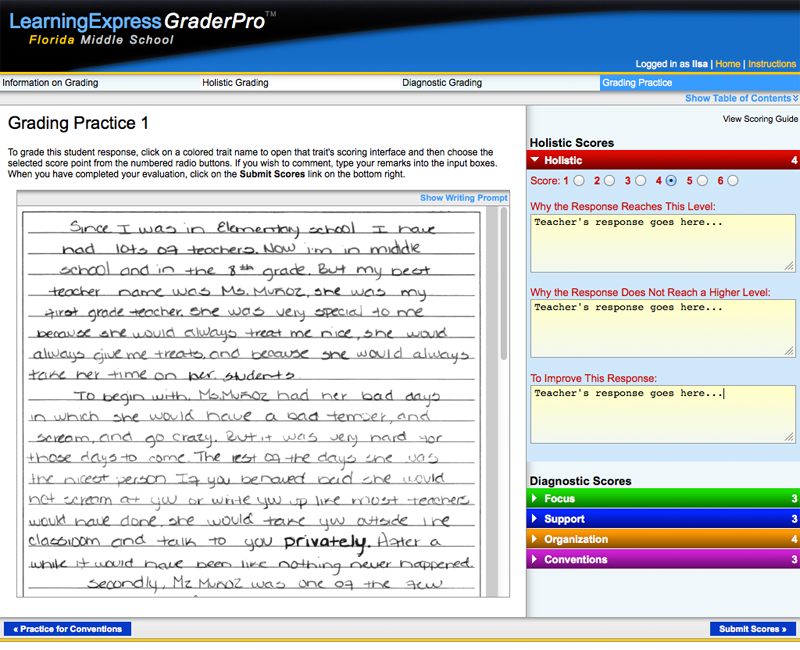 LearningExpress GraderPro™
Florida Middle School
Logged in as lisa | Home | Instructions
Information on Grading
Holistic Grading
Diagnostic Grading
Grading Practice
Show Table of Contents
View Scoring Guide
Grading Practice 1
To grade this student response, click on a colored trait name to open that trait's scoring interface and then choose the
selected score point from the numbered radio buttons. If you wish to comment, type your remarks into the input boxes.
When you have completed your evaluation, click on the Submit Scores link on the bottom right.
Show Writing Prompt
Since I was in Elementary school I have
had lots of teachers. Now I'm in middle
school and in the 8th grade. But my best
teacher name was Ms. Muñoz, she was my
first grade teacher. she was very special to me
because she would always treat me nice, she would
always give me treats, and because she would always
take her time on her students.
To begin with, Ms. Muñoz had her bad days
in which she would have a bad temper, and
scream, and go crazy. But it was very hard for
those days to come. The rest of the days she was
the nicest person If you behaved baid she would
not scream at you or write you up like most teachers
would have done, she would take you outside the
classroom and talk to you privately. After a
while it would have been like nothing never happened.
secondly, Mz Munoz was one of the few
Holistic Scores
Holistic 4
Score: 1 2 3 4 5 6
Why the Response Reaches This Level:
Teacher's response goes here...
Why the Response Does Not Reach a Higher Level:
Teacher's response goes here...
To Improve This Response:
Teacher's response goes here...
Diagnostic Scores
Focus 3
Support 3
Organization 4
Conventions 3
« Practice for Conventions
Submit Scores »